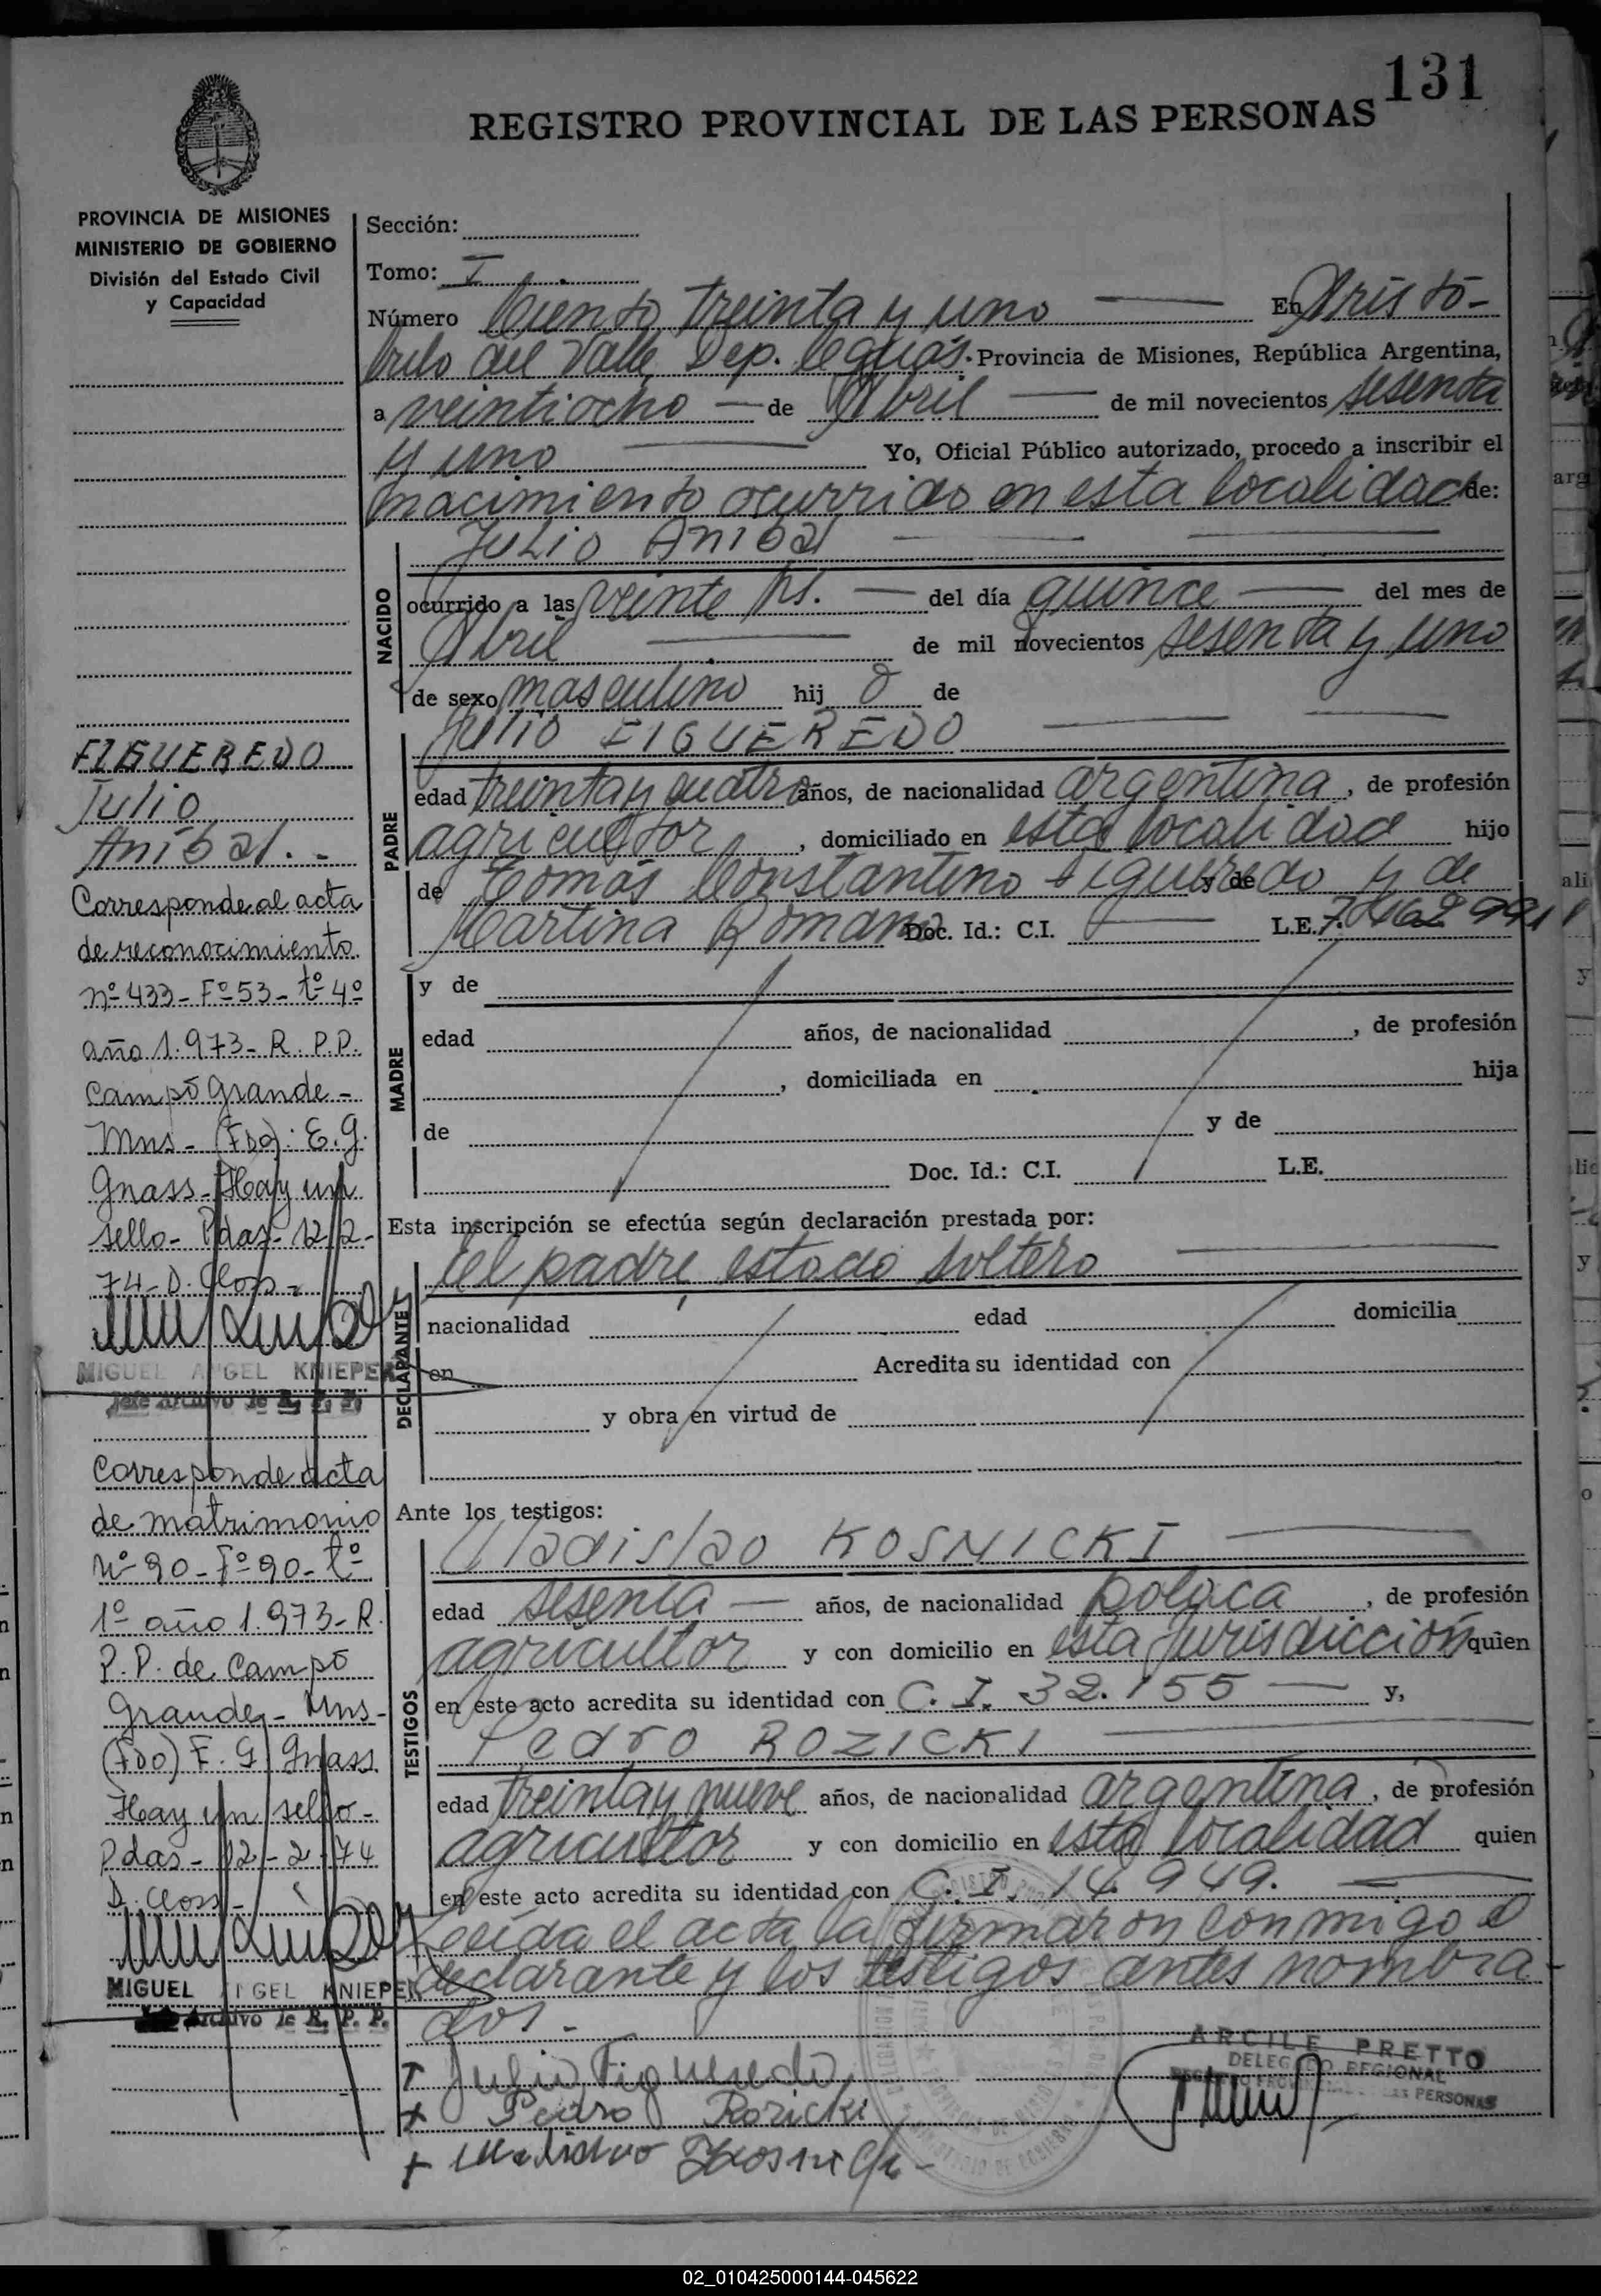 131
REGISTRO PROVINCIAL DE LAS PERSONAS
PROVINCIA DE MISIONES
MINISTERIO DE GOBIERNO
División del Estado Civil
y Capacidad
Sección:
Tomo: I
Número Ciento treinta y uno En Aristó-
bulo del Valle, Dep. Ceguás. Provincia de Misiones, República Argentina,
a veintiocho de Abril de mil novecientos sesenta
y uno Yo, Oficial Público autorizado, procedo a inscribir el
nacimiento ocurrido en esta localidad de:
NACIDO
Julio Anibal
ocurrido a las veinte hs. del día quince del mes de
Abril de mil novecientos sesenta y uno
de sexo masculino hij o de
PADRE
Julio FIGUEREDO
edad treinta y cuatro años, de nacionalidad argentina, de profesión
agricultor, domiciliado en esta localidad hijo
de Tomás Constantino Figueredo y de
Martina Romano Doc. Id.: C.I. L.E.
MADRE
y de
edad años, de nacionalidad , de profesión
, domiciliada en hija
de y de
Doc. Id.: C.I. L.E.
Esta inscripción se efectúa según declaración prestada por:
DECLARANTE
el padre, estado soltero
nacionalidad edad domicilia
en Acredita su identidad con
y obra en virtud de
Ante los testigos:
TESTIGOS
Uladislao KOSNICKI
edad sesenta años, de nacionalidad polaca, de profesión
agricultor y con domicilio en esta jurisdicción quien
en este acto acredita su identidad con C. I. 32.155 y,
Pedro ROZICKI
edad treinta y nueve años, de nacionalidad argentina, de profesión
agricultor y con domicilio en esta localidad quien
en este acto acredita su identidad con C. I. 14.949.
Leída el acta la firmaron conmigo el
declarante y los testigos antes nombra-
dos.-
Julio Figueredo
Pedro Rozicki
ARCILE PRETTO
DELEGADO REGIONAL
FIGUEREDO
Julio
Anibal.-
Corresponde al acta
de reconocimiento
nº 433- Fº 53- tº 4º
año 1.973- R. P.P.
Campo Grande-
Mns- (Fdo): E.G.
Gnass- Hay un
sello- Pdas- 12-2-
74- D. Closs-
MIGUEL ANGEL KNIEPER
Jefe Archivo de R. P. P.
Corresponde acta
de matrimonio
Nº 90- Fº 90- tº
1º año 1.973- R.
P.P. de Campo
Grande- Mns-
(Fdo) E. G. Gnass
Hay un sello-
Pdas- 12-2-74
D. Closs-
MIGUEL ANGEL KNIEPER
Jefe Archivo de R. P. P.
02_010425000144-045622